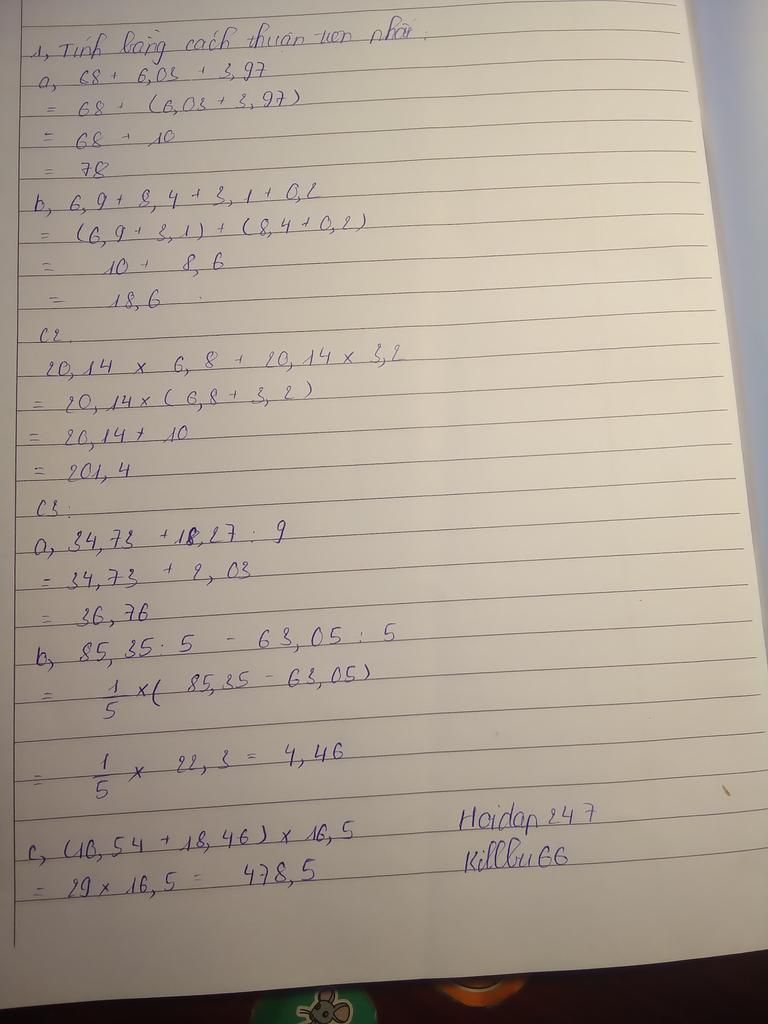 1, Tính bằng cách thuận tiện nhất:
a, 68 + 6,03 + 3,97
= 68 + (6,03 + 3,97)
= 68 + 10
= 78
b, 6,9 + 8,4 + 3,1 + 0,2
= (6,9 + 3,1) + (8,4 + 0,2)
= 10 + 8,6
= 18,6
C2.
20,14 × 6,8 + 20,14 × 3,2
= 20,14 × (6,8 + 3,2)
= 20,14 + 10
= 201,4
C3:
a, 34,73 + 18,27 : 9
= 34,73 + 2,03
= 36,76
b, 85,35 : 5 - 63,05 : 5
= 1/5 × (85,35 - 63,05)
= 1/5 × 22,3 = 4,46
c, (10,54 + 18,46) × 16,5
= 29 × 16,5 = 478,5
Hoidap247
Killbu66